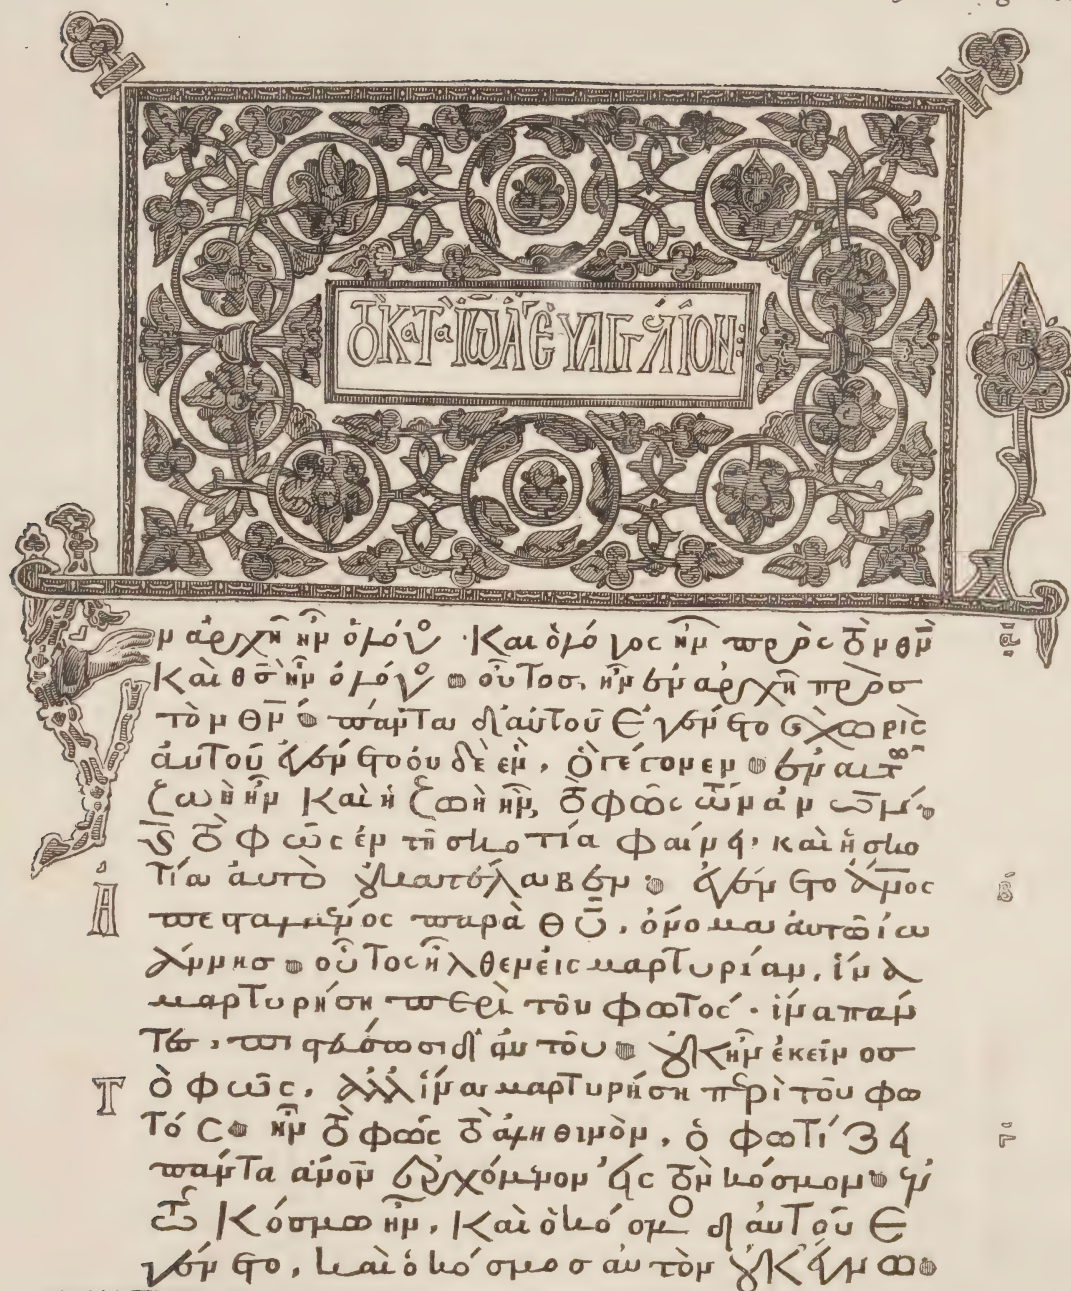 τὸ κατὰ ἰω ἅγ εὐαγγέλιον:
Ἐν ἀρχῆ ἦν ὁ λόγο · Καὶ ὁ λόγος ἦν πρὸς τὸν θν α
Καὶ θσ ἦν ὁ λόγο · οὗτος, ἦν ἐν ἀρχῆ πρὸσ
τὸν θν · πάντα δι' αὐτοῦ ἐγένετο καὶ χωρὶς
αὐτοῦ ἐγένετο οὐδὲ ἕν, ὃ γέγονεν · ἐν αὐτῶ
ζωὴ ἦν καὶ ἡ ζωὴ ἦν, τὸ φῶς τῶν ἀνων ·
καὶ τὸ φῶς ἐν τῆ σκοτία φαίνει · καὶ ἡ σκο
τία αὐτὸ οὐ κατέλαβεν · ἐγένετο ἄνος β
ἀπεσταλμένος παρὰ θυ, ὄνομα αὐτῶ ἰω
άννησ · οὗτος ἦλθεν εἰς μαρτυρίαν, ἵνα
μαρτυρήση περὶ τοῦ φωτός · ἵνα πάν
τες, πιστεύσωσι δι' αὐτοῦ · οὐκ ἦν ἐκεῖνοσ
Τὸ φῶς, ἀλλ ἵνα μαρτυρήση περὶ τοῦ φω
τός · ἦν τὸ φῶς τὸ ἀληθινὸν, ὃ φωτίζει γ
πάντα ἄνον ἐρχόμενον εἰς τὸν κόσμον · ἐν
τῶ Κόσμω ἦν, Καὶ ὁ κόσμο δι' αὐτοῦ ἐ
γένετο, καὶ ὁ κόσμοσ αὐτὸν οὐκ ἔγνω ·